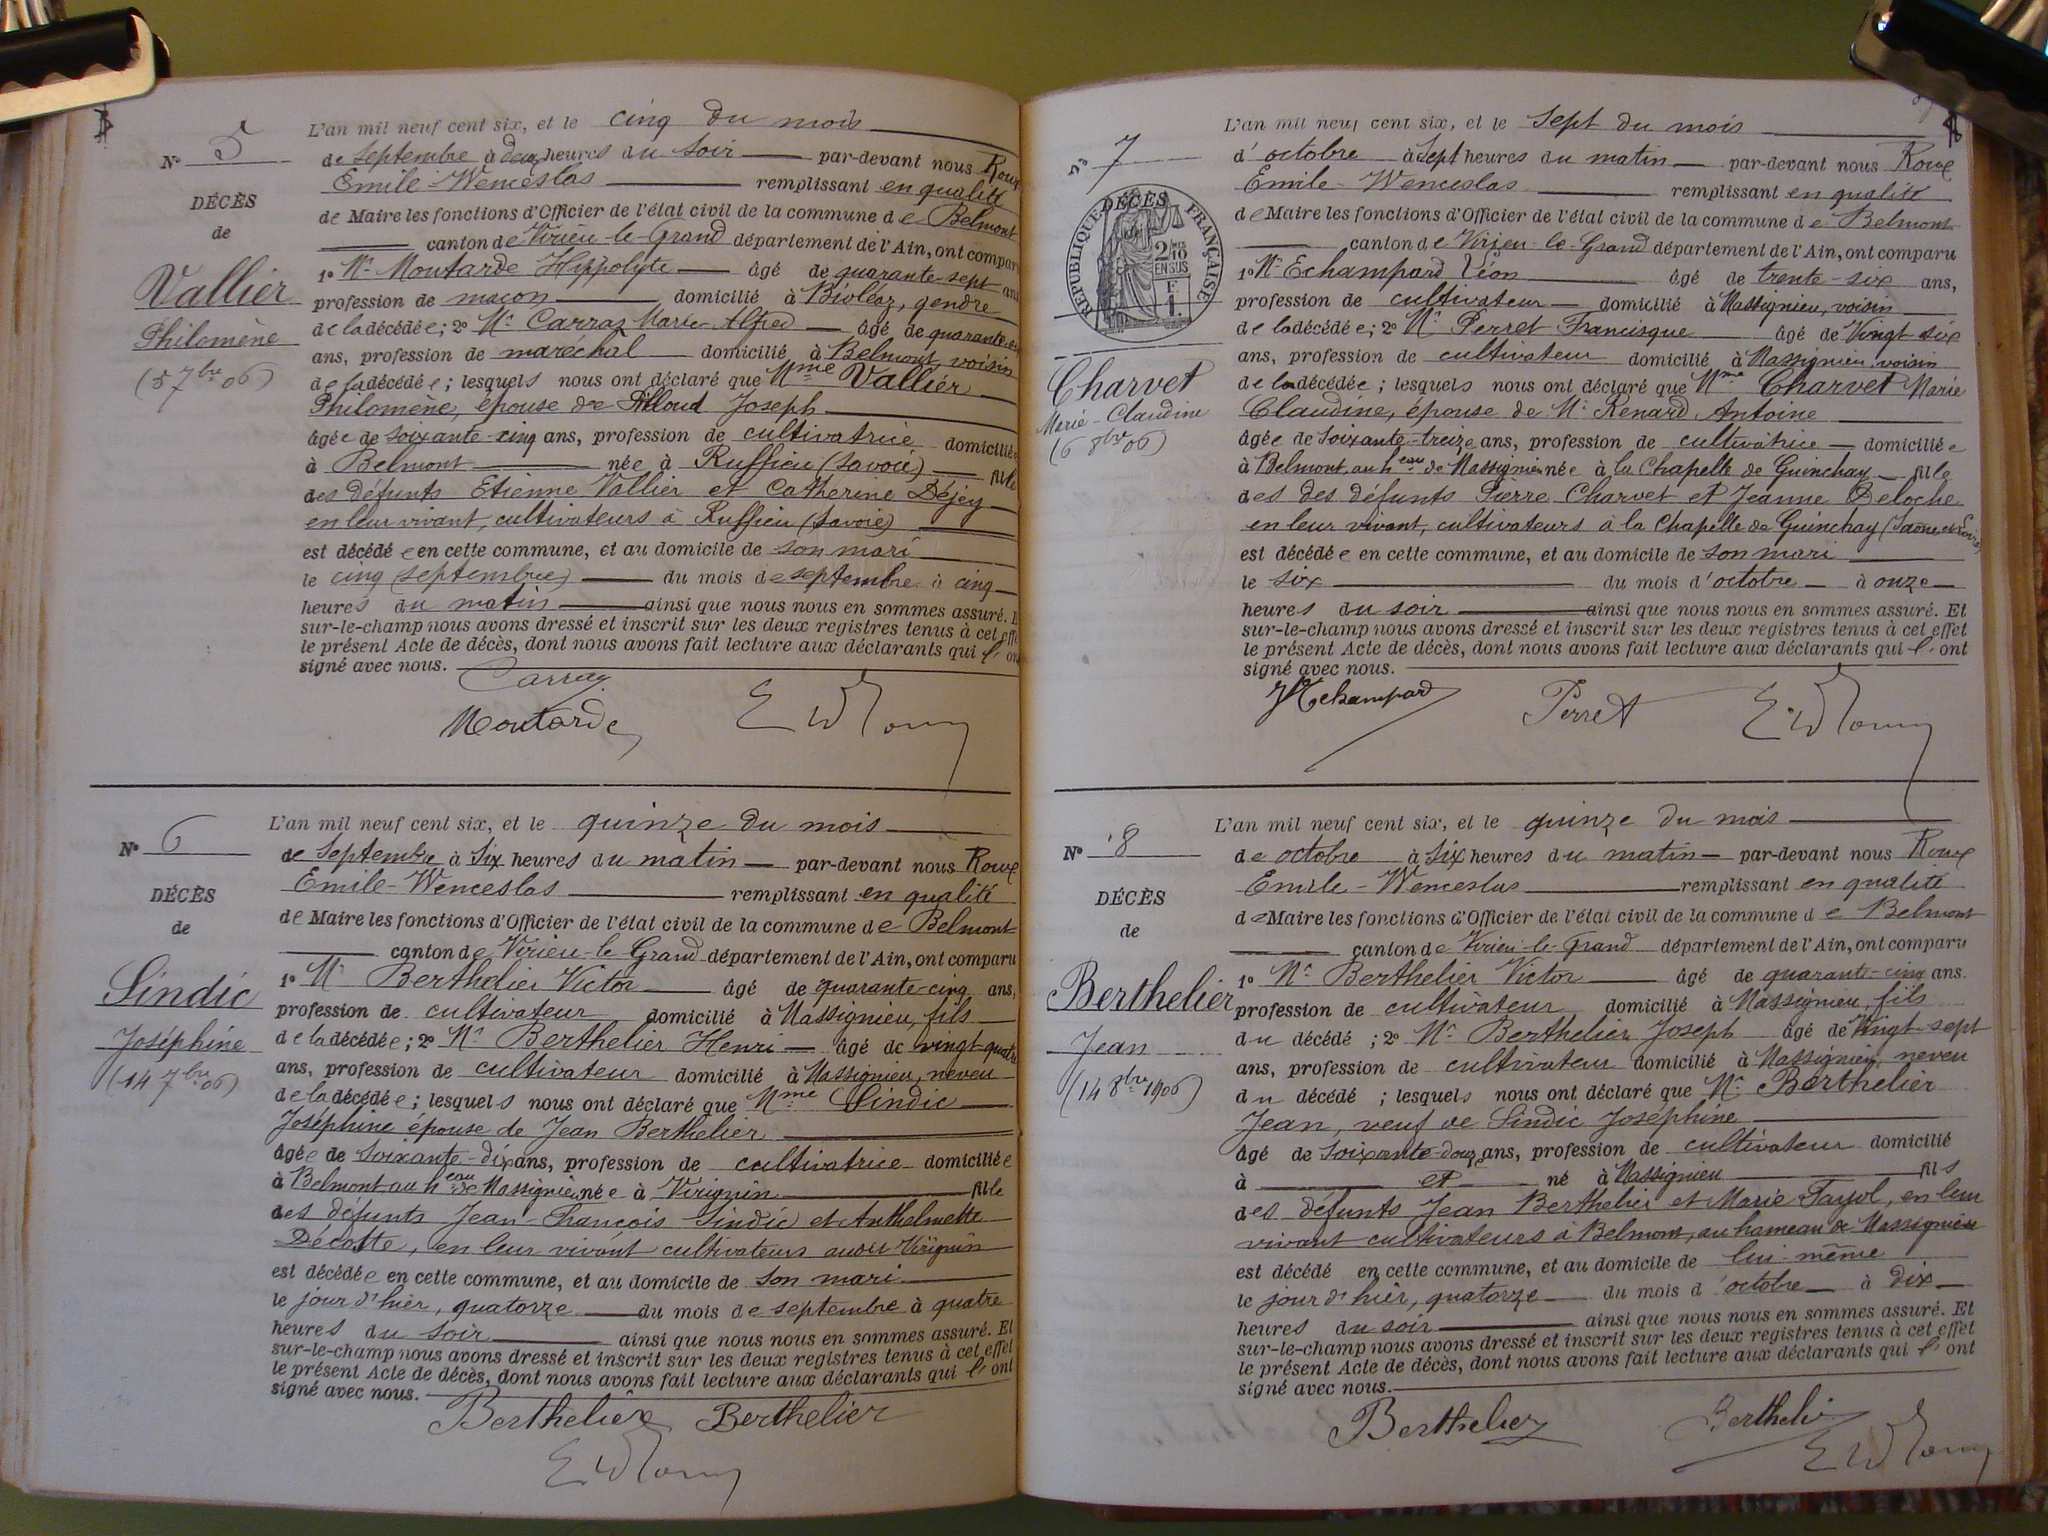 N° 5
DÉCÈS
de
Vallier
Philomène
(5 7bre 06)
L'an mil neuf cent six, et le cinq du mois
de septembre à deux heures du soir par-devant nous Roux
Emile-Wenceslas remplissant en qualité
de Maire les fonctions d'Officier de l'état civil de la commune de Belmont
canton de Virieu-le-Grand département de l'Ain, ont comparu
1° Mr Moutarde Hippolyte âgé de quarante-sept ans
profession de maçon domicilié à Bioléaz, gendre
de la décédée; 2° Mr Carraz Marie Alfred âgé de quarante-
ans, profession de maréchal domicilié à Belmont, voisin
de la décédée; lesquels nous ont déclaré que Mme Vallier
Philomène, épouse de Filloud Joseph
âgée de soixante-cinq ans, profession de cultivatrice domiciliée
à Belmont née à Ruffieu (Savoie) fille
des défunts Etienne Vallier et Catherine Déjey
en leur vivant, cultivateurs à Ruffieu (Savoie)
est décédée en cette commune, et au domicile de son mari
le cinq (septembre) du mois de septembre à cinq
heures du matin ainsi que nous nous en sommes assuré. E
sur-le-champ nous avons dressé et inscrit sur les deux registres tenus à cet effe
le présent Acte de décès, dont nous avons fait lecture aux déclarants qui l'on
signé avec nous.
Carraz
Moutarde E W Roux
N° 6
DÉCÈS
de
Sindic
Joséphine
(14 7bre 06)
L'an mil neuf cent six, et le quinze du mois
de septembre à six heures du matin par-devant nous Roux
Emile-Wenceslas remplissant en qualité
de Maire les fonctions d'Officier de l'état civil de la commune de Belmont
canton de Virieu-le-Grand département de l'Ain, ont comparu
1° Mr Berthelier Victor âgé de quarante-cinq ans,
profession de cultivateur domicilié à Massignieu, fils
de la décédée; 2° Mr Berthelier Henri âgé de vingt-quatre
ans, profession de cultivateur domicilié à Massignieu, neveu
de la décédée; lesquels nous ont déclaré que Mme Sindic
Joséphine épouse de Jean Berthelier
âgée de soixante-dix ans, profession de cultivatrice domiciliée
à Belmont au heau de Massignieu née à Virignin fille
des défunts Jean-François Sindic et Anthelmette
Décotte, en leur vivant cultivateurs audit Virignin
est décédée en cette commune, et au domicile de son mari
le jour d'hier, quatorze du mois de septembre à quatre
heures du soir ainsi que nous nous en sommes assuré. Et
sur-le-champ nous avons dressé et inscrit sur les deux registres tenus à cet effet
le présent Acte de décès, dont nous avons fait lecture aux déclarants qui l'ont
signé avec nous.
Berthelier Berthelier
E W Roux
N° 7
DÉCÈS
RÉPUBLIQUE FRANÇAISE
2/10 EN SUS
F. 1.
Charvet
Marie-Claudine
(6 8bre 06)
L'an mil neuf cent six, et le sept du mois
d'octobre à sept heures du matin par-devant nous Roux
Emile-Wenceslas remplissant en qualité
de Maire les fonctions d'Officier de l'état civil de la commune de Belmont
canton de Virieu-le-Grand département de l'Ain, ont comparu
1° Mr Echampard Léon âgé de trente-six ans,
profession de cultivateur domicilié à Massignieu, voisin
de la décédée; 2° Mr Perret Francisque âgé de vingt-six
ans, profession de cultivateur domicilié à Massignieu, voisin
de la décédée; lesquels nous ont déclaré que Mme Charvet Marie
Claudine, épouse de Mr Renard Antoine
âgée de soixante-treize ans, profession de cultivatrice domiciliée
à Belmont au heau de Massignieu née à la Chapelle de Guinchay fille
des des défunts Pierre Charvet et Jeanne Deloche
en leur vivant, cultivateurs à la Chapelle de Guinchay (Saône et Loire)
est décédée en cette commune, et au domicile de son mari
le six du mois d'octobre à onze
heures du soir ainsi que nous nous en sommes assuré. Et
sur-le-champ nous avons dressé et inscrit sur les deux registres tenus à cet effet
le présent Acte de décès, dont nous avons fait lecture aux déclarants qui l'ont
signé avec nous.
Echampard Perret E. W Roux
N° 8
DÉCÈS
de
Berthelier
Jean
(14 8bre 1906)
L'an mil neuf cent six, et le quinze du mois
de octobre à six heures du matin par-devant nous Roux
Emile-Wenceslas remplissant en qualité
de Maire les fonctions d'Officier de l'état civil de la commune de Belmont
canton de Virieu-le-Grand département de l'Ain, ont comparu
1° Mr Berthelier Victor âgé de quarante-cinq ans.
profession de cultivateur domicilié à Massignieu, fils
du décédé; 2° Mr Berthelier Joseph âgé de vingt-sept
ans, profession de cultivateur domicilié à Massignieu, neveu
du décédé; lesquels nous ont déclaré que Mr Berthelier
Jean, veuf de Sindic Joséphine
âgé de soixante-douze ans, profession de cultivateur domicilié
à et né à Massignieu fils
des défunts Jean Berthelier et Marie Tayol, en leur
vivant cultivateurs à Belmont, au hameau de Massignieu
est décédé en cette commune, et au domicile de lui-même
le jour d'hier, quatorze du mois d'octobre à dix
heures du soir ainsi que nous nous en sommes assuré. Et
sur-le-champ nous avons dressé et inscrit sur les deux registres tenus à cet effet
le présent Acte de décès, dont nous avons fait lecture aux déclarants qui l'ont
signé avec nous.
Berthelier Berthelier
E W Roux